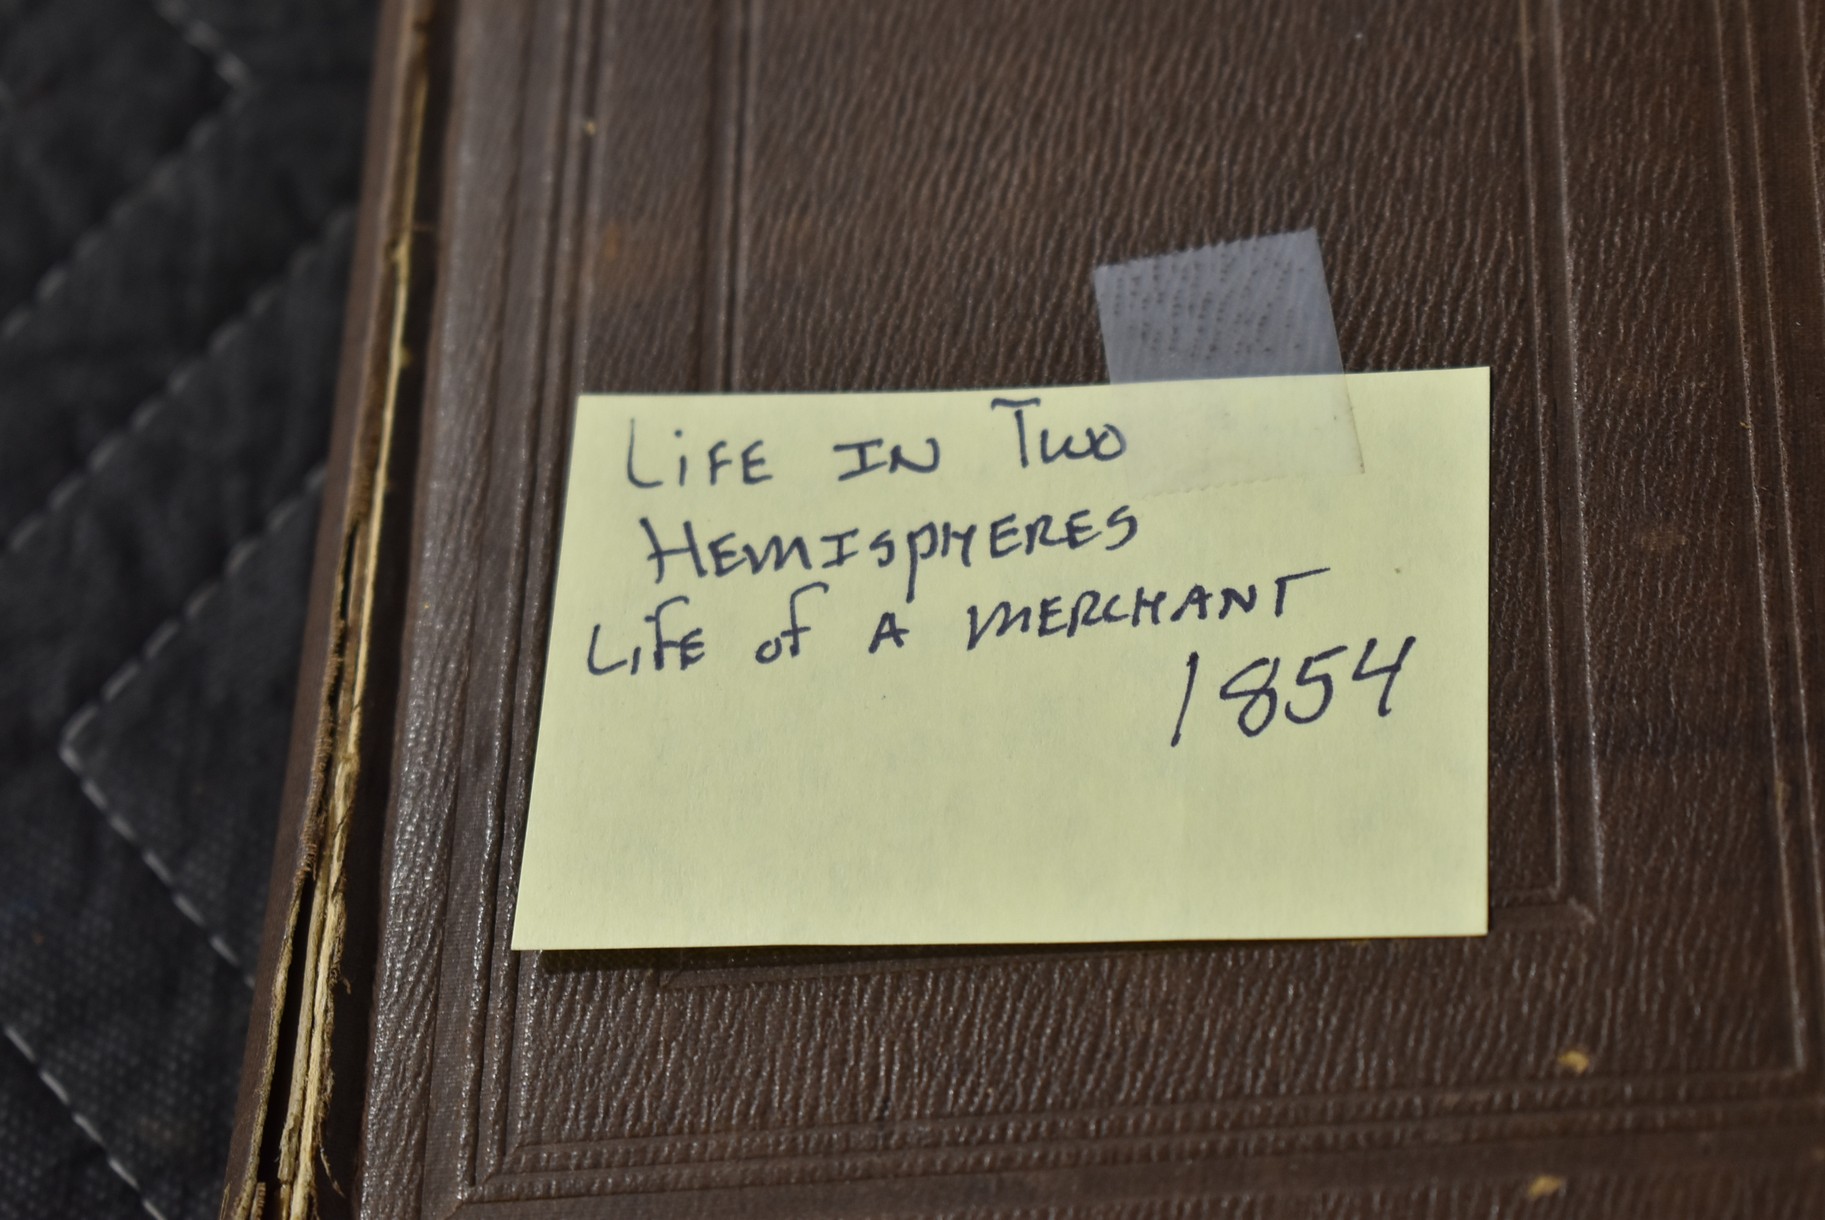 LiFE IN Two
HEMISPHERES
LiFE of A MERCHANT
1854